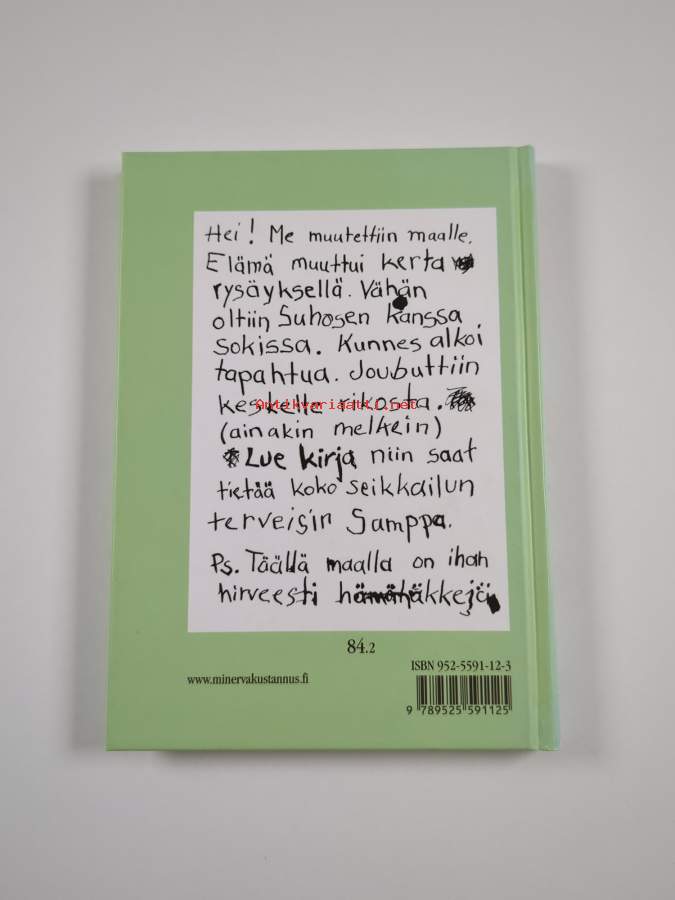 Hei! Me muutettiin maalle.
Elämä muuttui kerta
rysäyksellä. Vähän
oltiin Suhosen kanssa
sokissa. Kunnes alkoi
tapahtua. Joubuttiin
keskelle rikosta.
Antikvariaatti.net
(ainakin melkein)
Lue kirja niin saat
tietää koko seikkailun
terveisin Samppa.
Ps. Täällä maalla on ihan
hirveesti hämähäkkejä
84.2
ISBN 952-5591-12-3
www.minervakustannus.fi
9 789525 591125